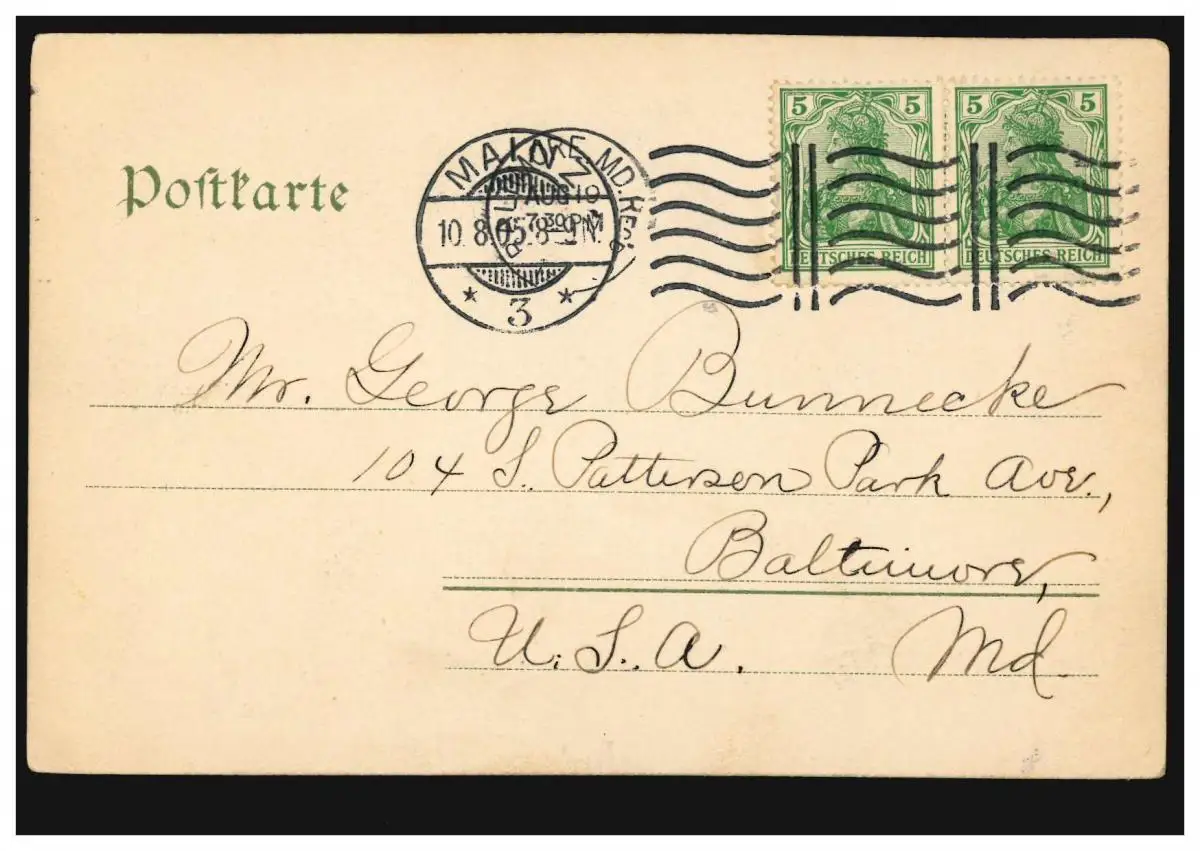 5 5 5 5
DEUTSCHES REICH DEUTSCHES REICH
Poſtkarte
MAINZ
10.8.05.8-9N.
* 3 *
MD. REC'D
AUG 19
7 30 PM
Mr. George Bunnecke
104 S. Patterson Park Ave.,
Baltimore,
U.S.A. Md.